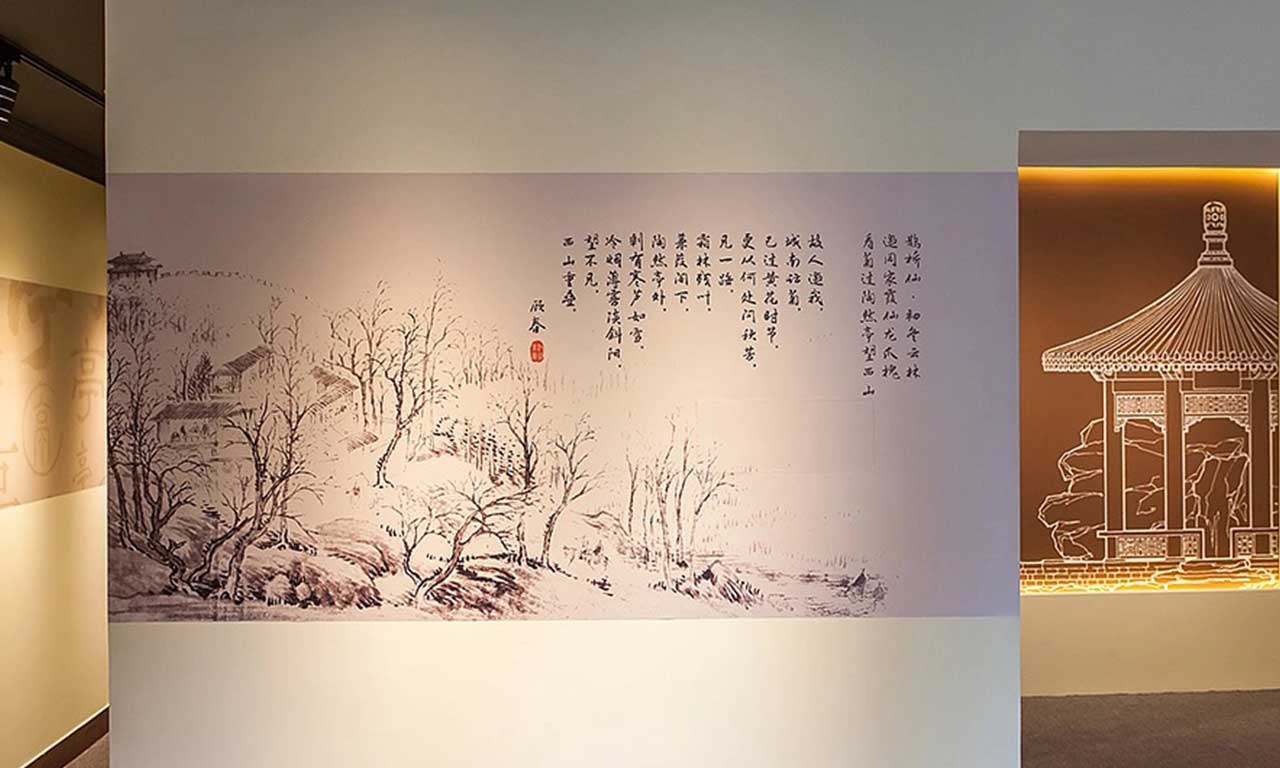 鹊桥仙·初冬云林
邀同家霞仙龙爪槐
看菊过陶然亭望西山
故人邀我,
城南访菊,
已过黄花时节。
更从何处问秋芳,
凡一路、
霜林残叶。
蒹葭阁下,
陶然亭外,
剩有寒芦如雪。
冷烟薄雾淡斜阳,
望不凡、
西山重叠。
顾春
亭
亭